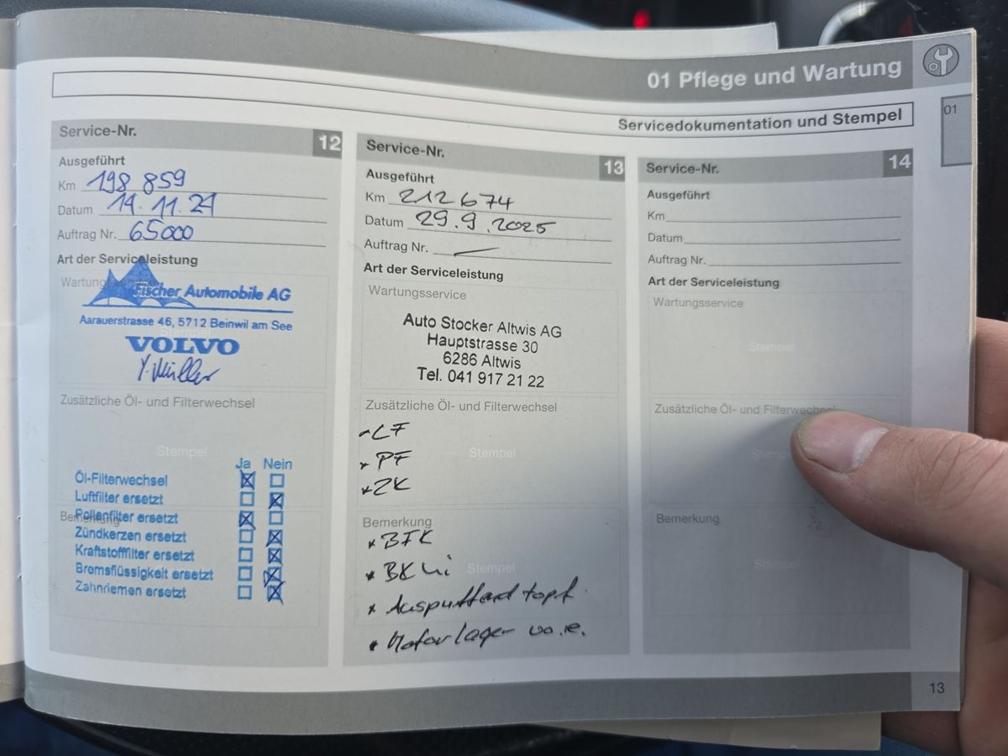 01 Pflege und Wartung
01
Servicedokumentation und Stempel
Service-Nr. 12
Ausgeführt
Km 198 859
Datum 19.11.21
Auftrag Nr. 65000
Art der Serviceleistung
Fischer Automobile AG
Aarauerstrasse 46, 5712 Beinwil am See
VOLVO
Y. Müller
Zusätzliche Öl- und Filterwechsel
Stempel
Ja Nein
Öl-Filterwechsel
Luftfilter ersetzt
Pollenfilter ersetzt
Zündkerzen ersetzt
Kraftstofffilter ersetzt
Bromsflüssigkeit ersetzt
Zahnriemen ersetzt
Service-Nr. 13
Ausgeführt
Km 212 674
Datum 29.9.2025
Auftrag Nr. —
Art der Serviceleistung
Wartungsservice
Auto Stocker Altwis AG
Hauptstrasse 30
6286 Altwis
Tel. 041 917 21 22
Zusätzliche Öl- und Filterwechsel
- LF
Stempel
* PF
* ZK
Bemerkung
* BFK
* BK hi
Stempel
* Auspuffendtopf
* Motorlager vo.re.
Service-Nr. 14
Ausgeführt
Km
Datum
Auftrag Nr.
Art der Serviceleistung
Wartungsservice
Stempel
Zusätzliche Öl- und Filterwechsel
Bemerkung
Stempel
13